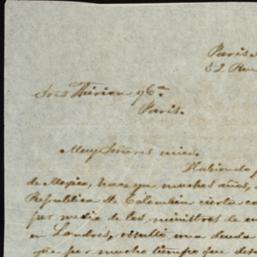 Paris
52 Rue
Sres Thirion y Ca.
Paris.
Muy Señores mios.
Habiendo
de Mejico, hace ya muchos años,
Republica de Colombia cierta
por medio de los ministros de
en Londres, resultó una deuda
que por mucho tiempo